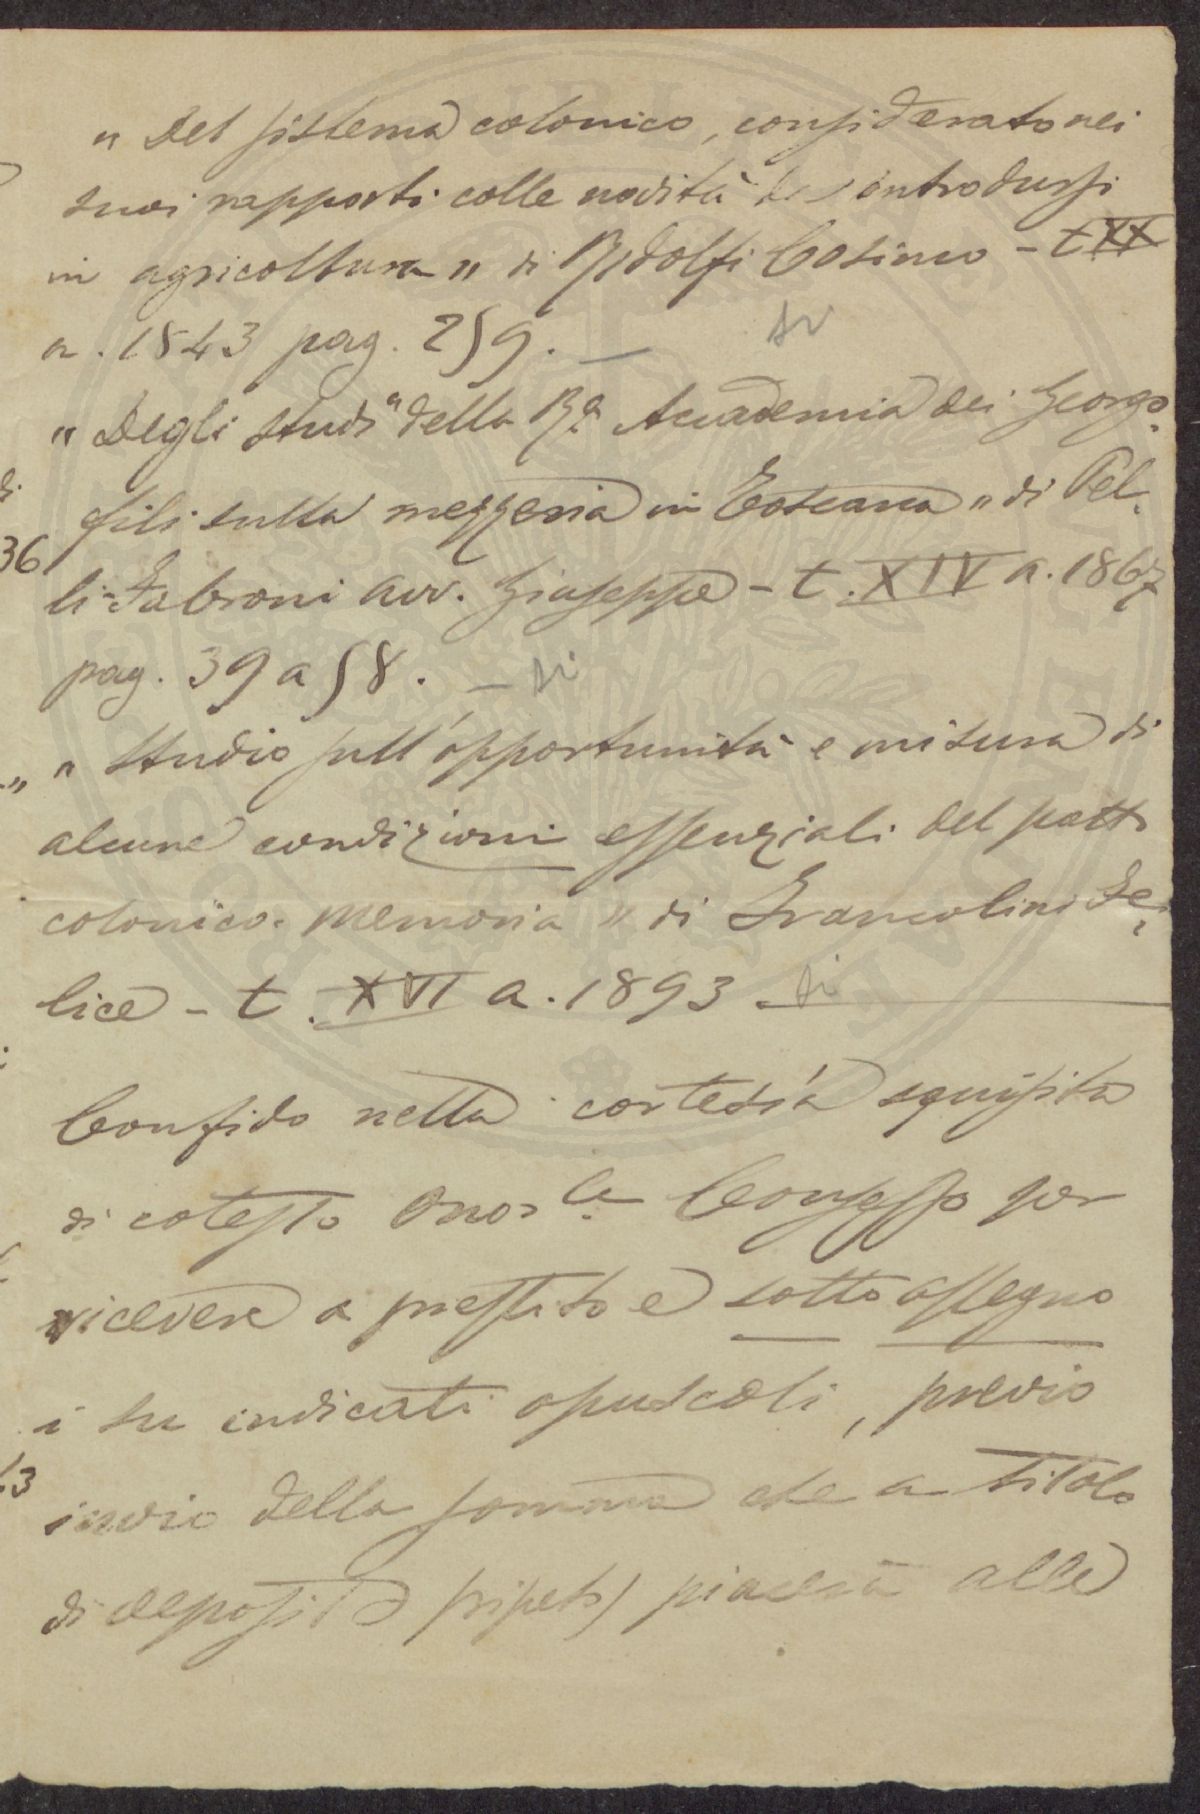 " Del sistema colonico, considerato nei
suoi rapporti colle novità da introdursi
in agricoltura " di Ridolfi Cosimo - t XX
a. 1843 pag. 259. — si
" Degli studi " della R.a Accademia dei Georgo-
fili sulla mezzeria in Toscana " di Pel-
li-Fabroni avv. Giuseppe - t. XIV a. 1867
pag. 39 a 58. — si
" Studio sull'opportunità e misura di
alcune condizioni essenziali del patto
colonico. Memoria " di Francolini Fe-
lice - t. XVI a. 1893 — si
Confido nella cortesìa squisita
di cotesto Onor.le Consesso per
ricevere a prestito e sotto assegno
i su indicati opuscoli, previo
invio della somma che a titolo
di deposito (ripeto) piacerà alla